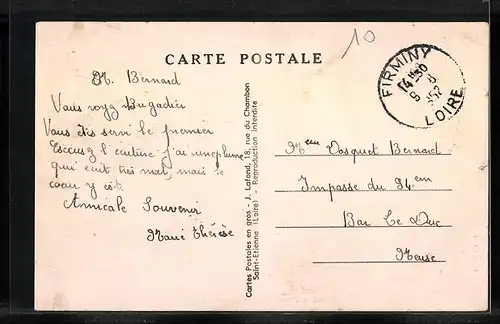 CARTE POSTALE
10
M. Bernard
Vous voyez Brigadier
Vous êtes servi le premier
Escusez l'ecriture j'ai une plume
qui ecrit très mal, mais le
coeur y est.
Amicale Souvenir
Marie Thérèse
Cartes Postales en gros - J. Lafond, 18, rue du Chambon
Saint-Etienne (Loire) - Reproduction interdite
FIRMINY
LOIRE
Bernard
Impasse du 94em
Bar Le Duc
Meuse